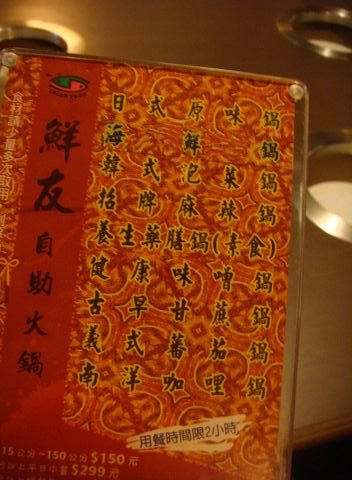 鮮友自助火鍋
食材請少量多次取用
日式原味鍋
海鮮鍋
韓式泡菜鍋
招牌麻辣鍋
養生藥膳鍋(素食)
健康味噌鍋
古早甘蔗鍋
義式蕃茄鍋
南洋咖哩鍋
用餐時間限2小時
15公分~150公分$150元
分以上平日中餐$299元